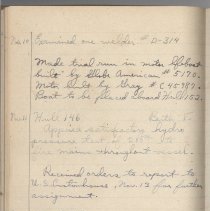 Nov.10 Examined one welder # D-314
Made trial run in motor lifeboat
built by Globe American # 5170.
Motor built by Gray # C45787.
Boat to be placed aboard Hull 152.
Nov.11 Hull 146
Applied satisfactory hydro
pressure test of to
fire mains throughout vessel.
Received orders to report to
U.S. Customhouse, Nov. 13 for further
assignment.